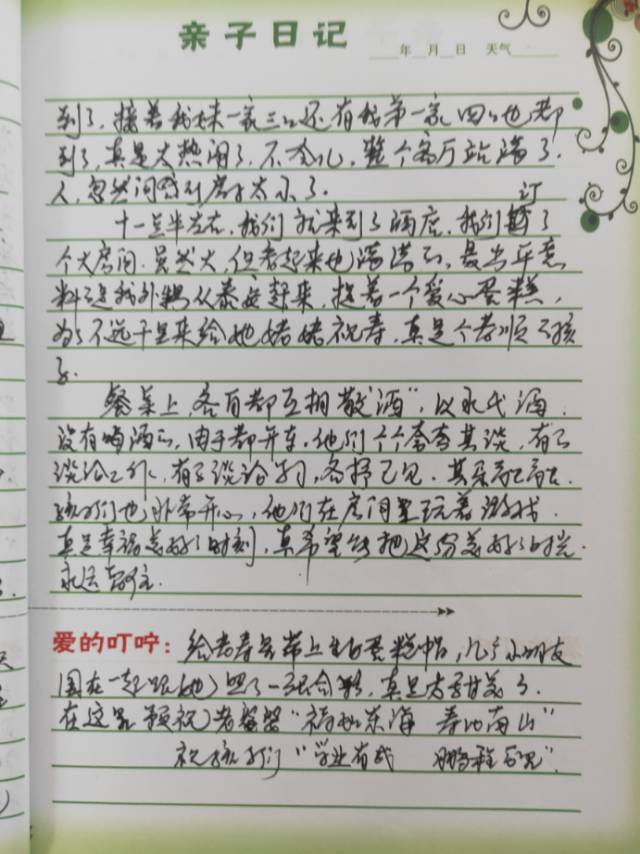 亲子日记
年 月 日 天气
到了。接着我妹一家三口还有我弟一家四口也都
到了,真是太热闹了。不会儿,整个客厅站满了
人,忽然间感到房子太小了。
订
十一点半左右,我们就来到了酒店。我们了
个大房间。虽然大,但看起来也满满的,最出乎意
料的是我外甥从泰安赶来,提着一个爱心蛋糕,
为了不远千里来给她姥姥祝寿,真是个孝顺的孩
子。
餐桌上,各自都互相敬“酒”,以水代酒.
没有喝酒的,由于都开车,他们个个夸夸其谈,有的
谈论工作,有的谈论学习,各抒己见.其乐融融.
孩子们也非常开心,他们在房间里玩着游戏.
真是幸福美好的时刻,真希望能把这份美好的时光
永远留住.
爱的叮咛:给老寿星带上生日蛋糕帽,几个小朋友
围在一起跟她照了一张合影,真是太甜美了.
在这里预祝老爸爸“福如东海 寿比南山”
祝孩子们“学业有成 鹏程万里”.